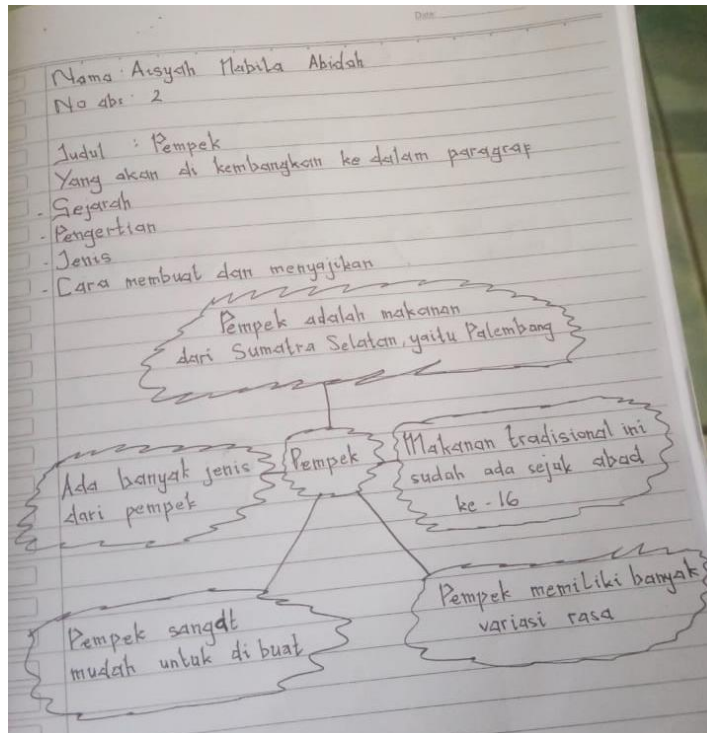 Date
Nama : Aisyah Nabila Abidah
No abs : 2
Judul : Pempek
Yang akan di kembangkan ke dalam paragrap
- Sejarah
- Pengertian
- Jenis
- Cara membuat dan menyajikan
Pempek adalah makanan
dari Sumatra Selatan, yaitu Palembang
Ada banyak jenis
dari pempek
Pempek
Makanan tradisional ini
sudah ada sejak abad
ke-16
Pempek sangat
mudah untuk di buat
Pempek memiliki banyak
variasi rasa